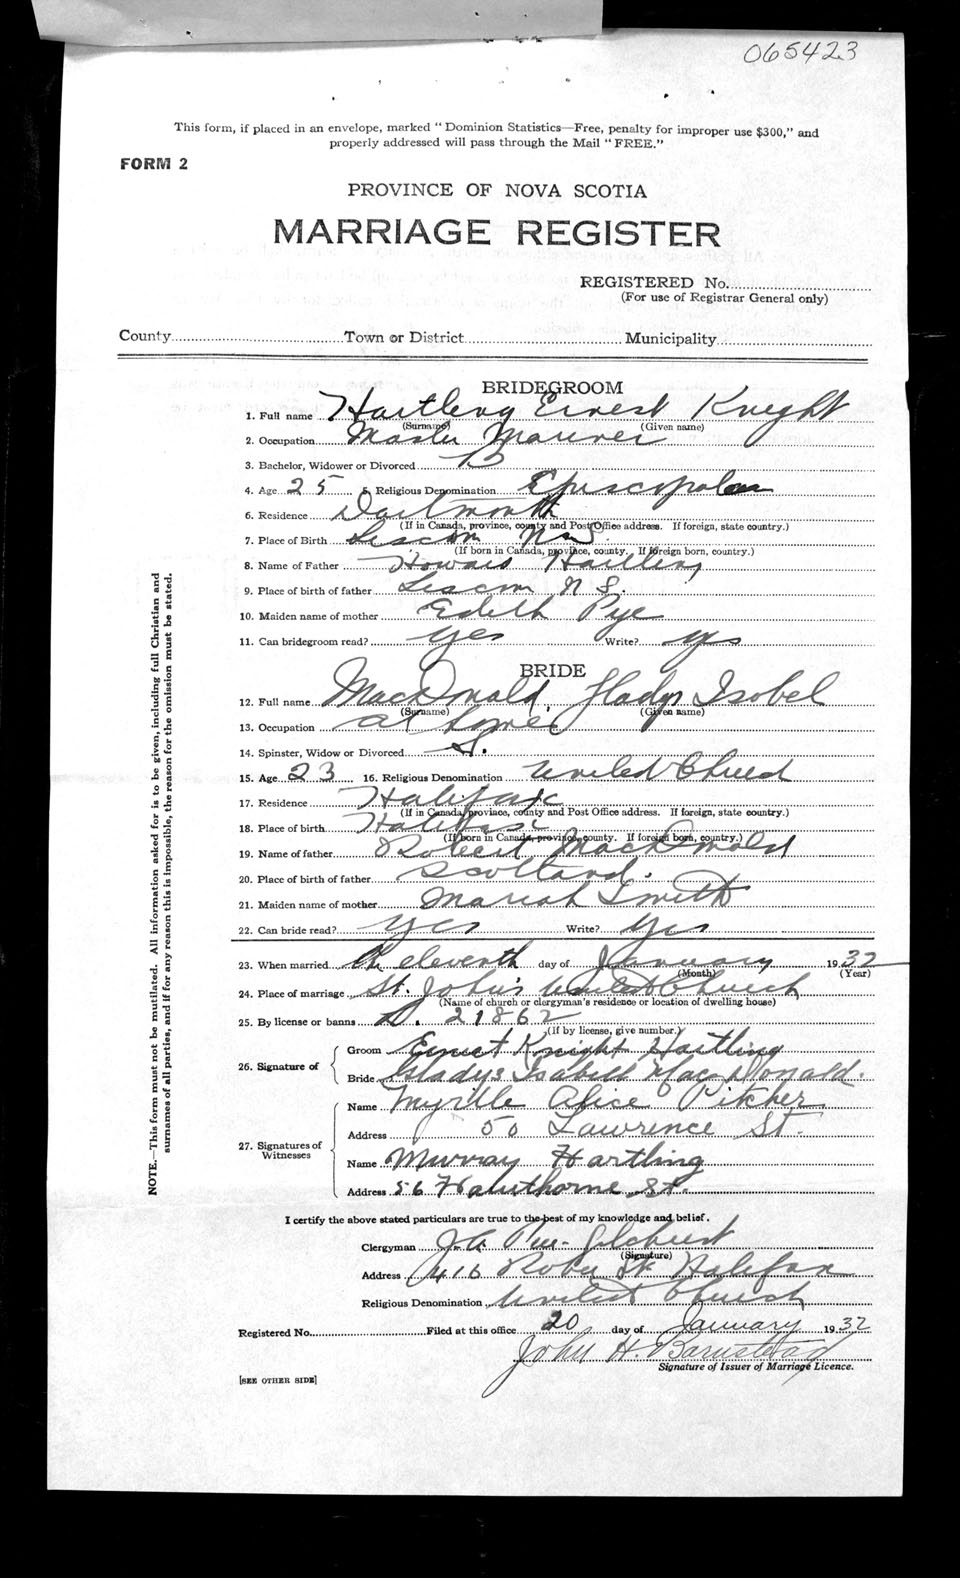 065423
This form, if placed in an envelope, marked "Dominion Statistics—Free, penalty for improper use $300," and
properly addressed will pass through the Mail "FREE."
FORM 2
PROVINCE OF NOVA SCOTIA
MARRIAGE REGISTER
REGISTERED No.
(For use of Registrar General only)
County Town or District Municipality
BRIDEGROOM
1. Full name Hartling Ernest Knight
(Surname) (Given name)
2. Occupation Master Mariner
3. Bachelor, Widower or Divorced B
4. Age 25 5. Religious Denomination Episcopalian
6. Residence Dartmouth
(If in Canada, province, county and Post Office address. If foreign, state country.)
7. Place of Birth Liscom NS.
(If born in Canada, province, county. If foreign born, country.)
8. Name of Father Howard Hartling
9. Place of birth of father Liscom N S.
10. Maiden name of mother Edith Pye
11. Can bridegroom read? yes Write? yes
BRIDE
12. Full name MacDonald, Gladys Isobel
(Surname) (Given name)
13. Occupation at home
14. Spinster, Widow or Divorced S.
15. Age 23 16. Religious Denomination United Church
17. Residence Halifax
(If in Canada, province, county and Post Office address. If foreign, state country.)
18. Place of birth Halifax
(If born in Canada, province, county. If foreign born, country.)
19. Name of father Robert MacDonald
20. Place of birth of father Scotland.
21. Maiden name of mother Mariah Smith
22. Can bride read? yes Write? yes
23. When married the eleventh day of January 1932
(Month) (Year)
24. Place of marriage St. John's United Church
(Name of church or clergyman's residence or location of dwelling house)
25. By license or banns 21862
(If by license, give number.)
26. Signature of
Groom Ernest Knight Hartling
Bride Gladys Isabell MacDonald.
27. Signatures of Witnesses
Name Myrtle Alice Pitcher
Address 50 Lawrence St.
Name Murray Hartling
Address 56 Hawthorne St.
I certify the above stated particulars are true to the best of my knowledge and belief.
Clergyman J.A. Gilchrist
(Signature)
Address Robie St Halifax
Religious Denomination United Church
Registered No. Filed at this office 20 day of January 1932
John H. Barnstead
Signature of Issuer of Marriage Licence.
[SEE OTHER SIDE]
NOTE.—This form must not be mutilated. All information asked for is to be given, including full Christian and
surnames of all parties, and if for any reason this is impossible, the reason for the omission must be stated.